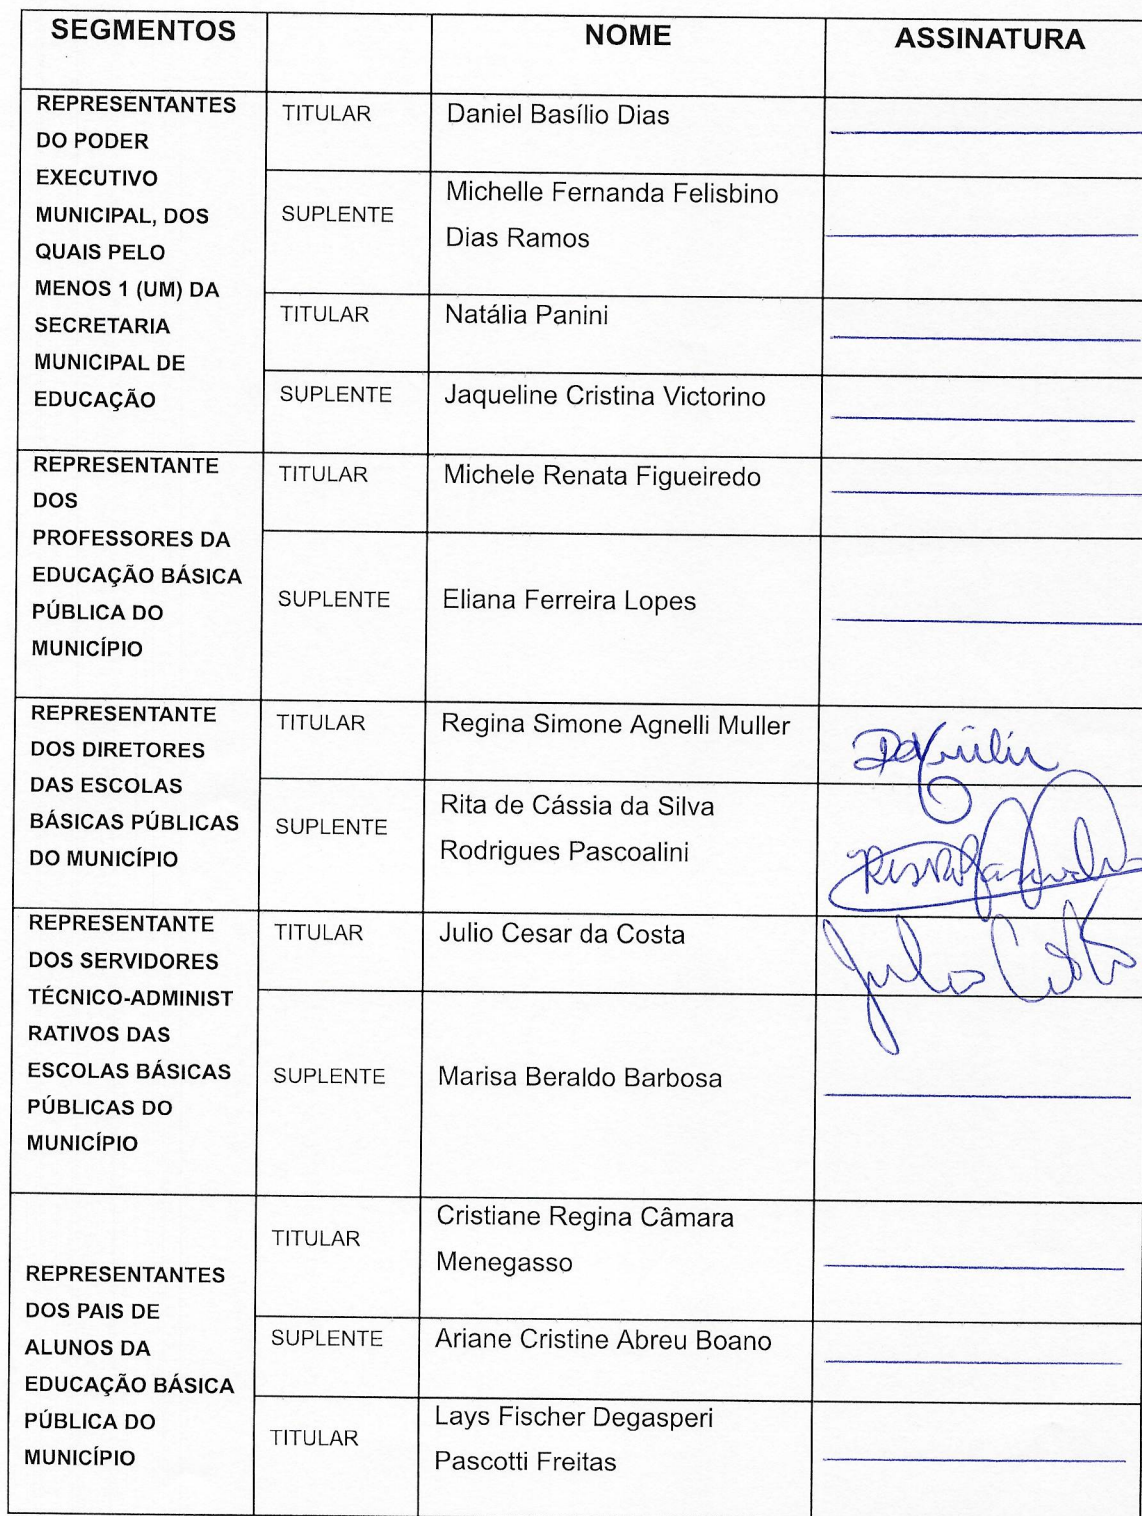 SEGMENTOS
NOME
ASSINATURA
REPRESENTANTES
DO PODER
EXECUTIVO
MUNICIPAL, DOS
QUAIS PELO
MENOS 1 (UM) DA
SECRETARIA
MUNICIPAL DE
EDUCAÇÃO
TITULAR
Daniel Basílio Dias
SUPLENTE
Michelle Fernanda Felisbino
Dias Ramos
TITULAR
Natália Panini
SUPLENTE
Jaqueline Cristina Victorino
REPRESENTANTE
DOS
PROFESSORES DA
EDUCAÇÃO BÁSICA
PÚBLICA DO
MUNICÍPIO
TITULAR
Michele Renata Figueiredo
SUPLENTE
Eliana Ferreira Lopes
REPRESENTANTE
DOS DIRETORES
DAS ESCOLAS
BÁSICAS PÚBLICAS
DO MUNICÍPIO
TITULAR
Regina Simone Agnelli Muller
SUPLENTE
Rita de Cássia da Silva
Rodrigues Pascoalini
REPRESENTANTE
DOS SERVIDORES
TÉCNICO-ADMINIST
RATIVOS DAS
ESCOLAS BÁSICAS
PÚBLICAS DO
MUNICÍPIO
TITULAR
Julio Cesar da Costa
Julio
SUPLENTE
Marisa Beraldo Barbosa
REPRESENTANTES
DOS PAIS DE
ALUNOS DA
EDUCAÇÃO BÁSICA
PÚBLICA DO
MUNICÍPIO
TITULAR
Cristiane Regina Câmara
Menegasso
SUPLENTE
Ariane Cristine Abreu Boano
TITULAR
Lays Fischer Degasperi
Pascotti Freitas